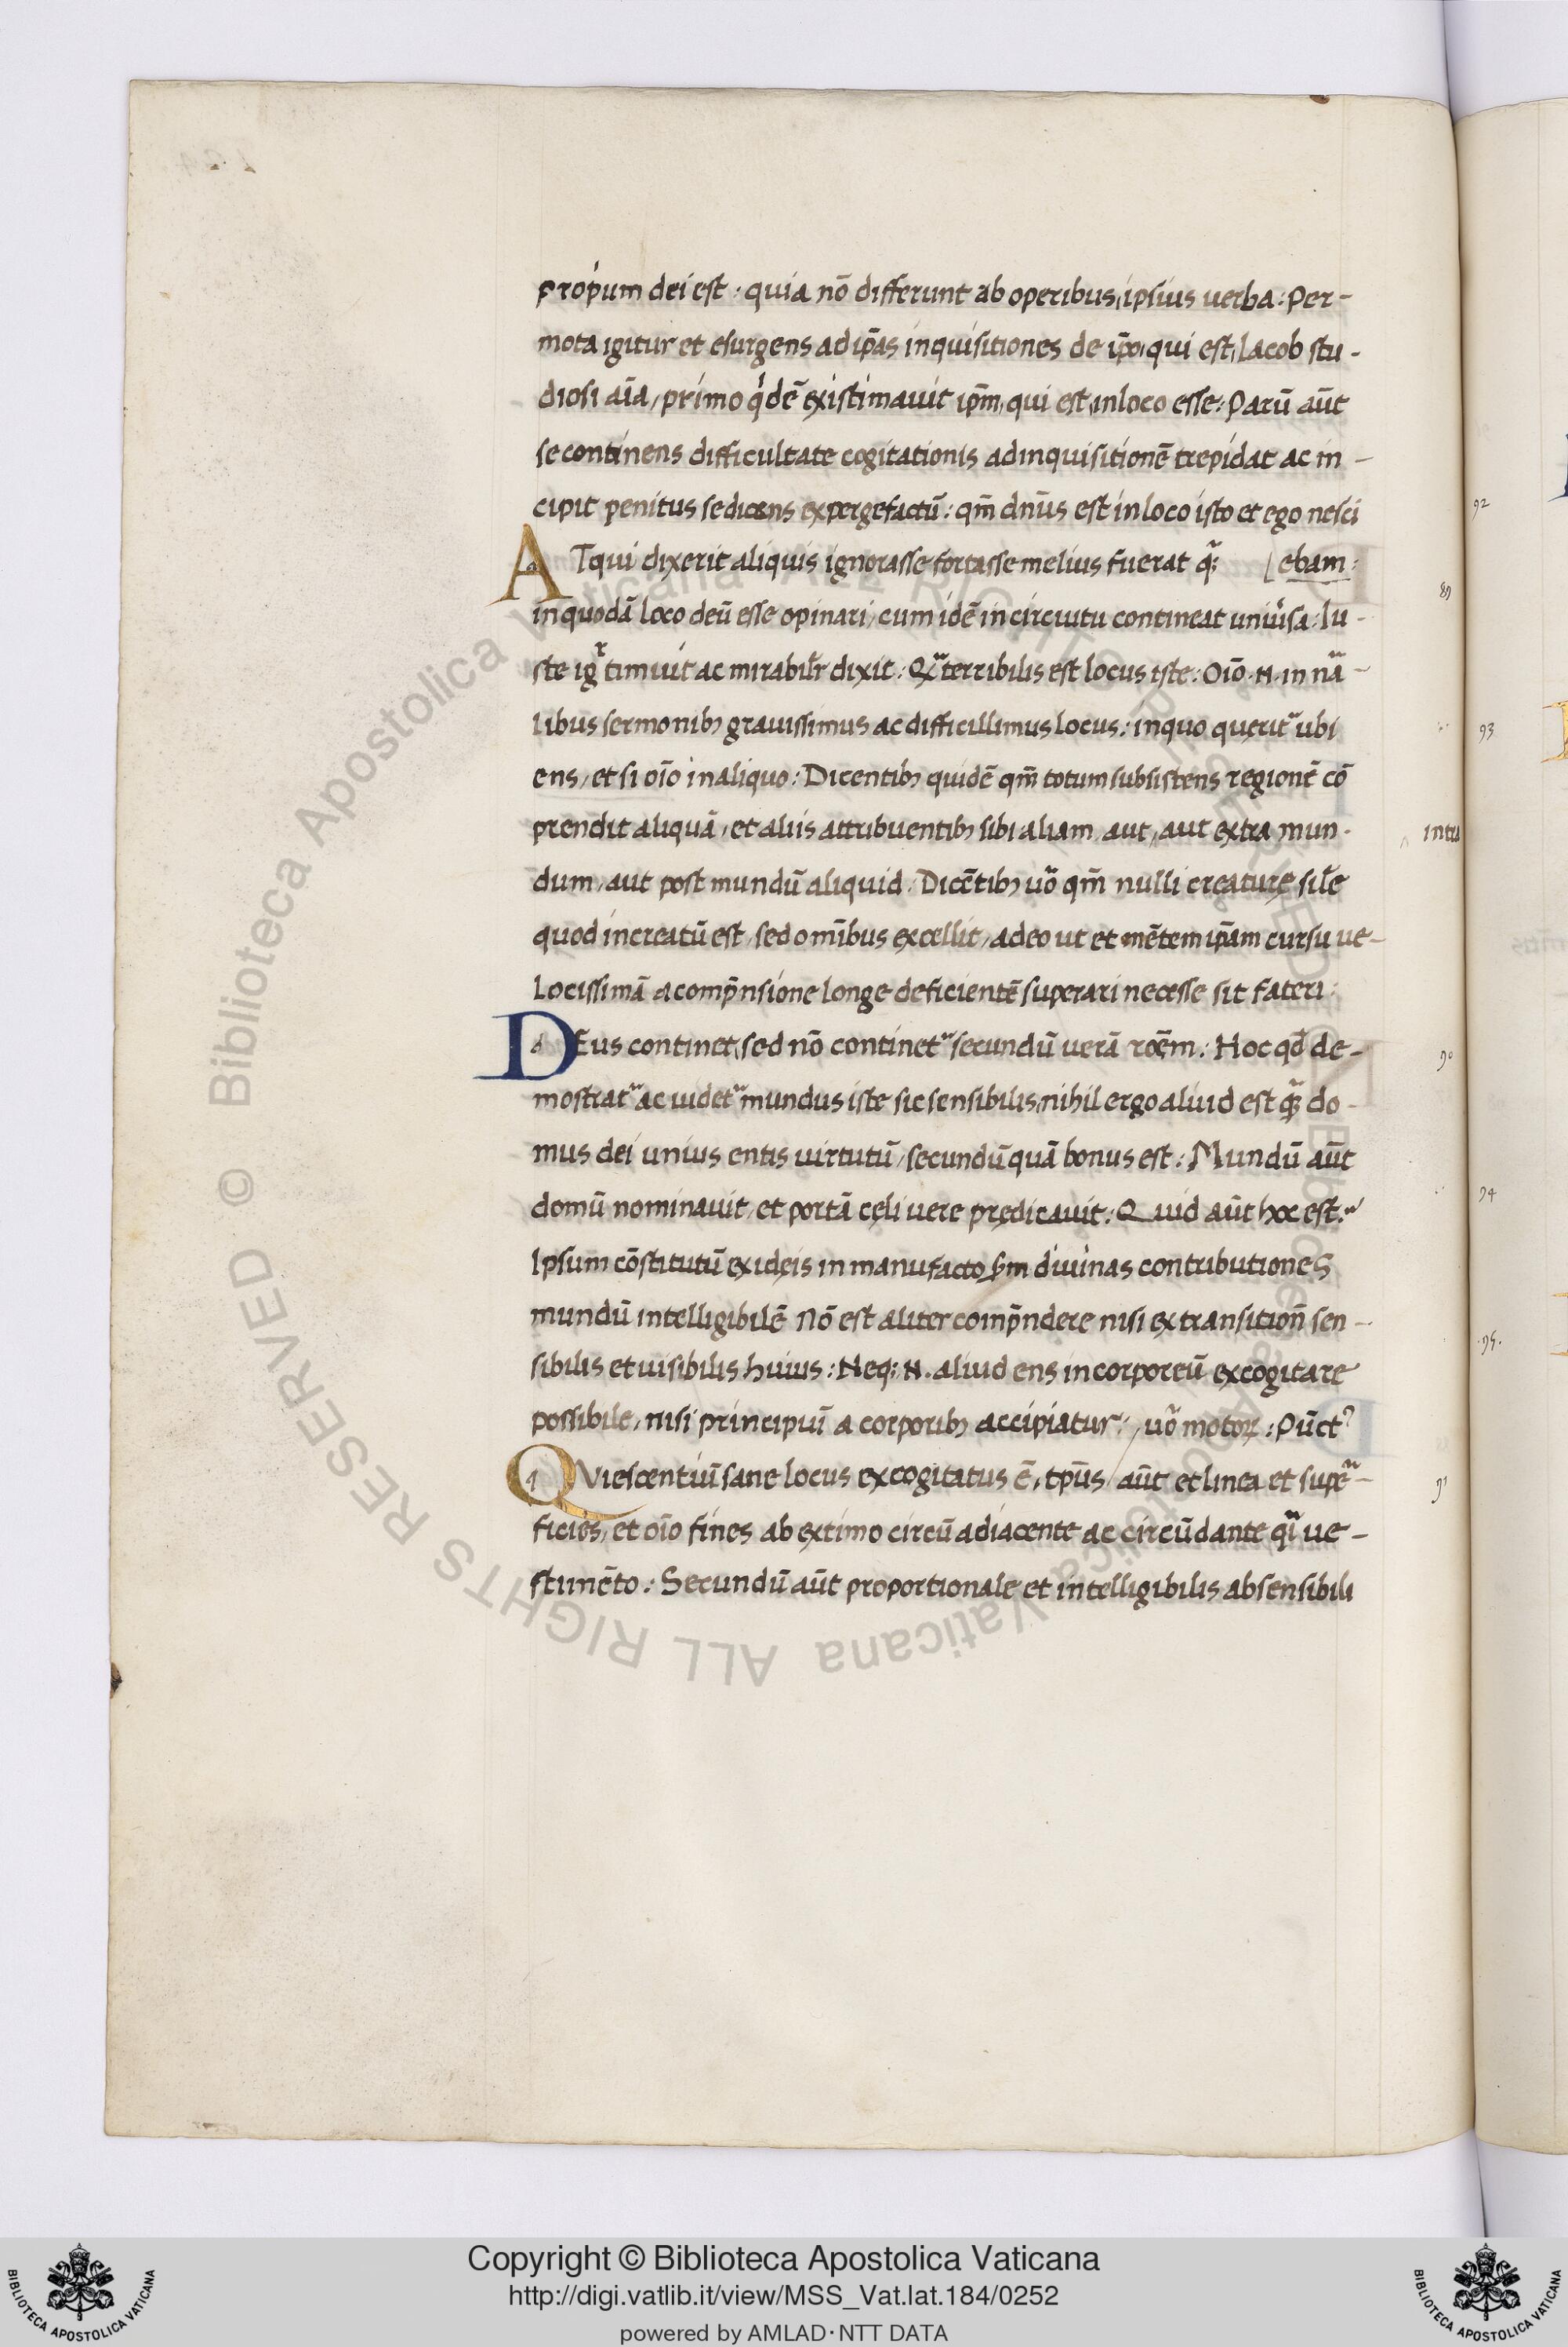 propium dei est : quia nō differunt ab operibus, ipsius uerba : Per-
mota igitur et esurgens ad ip̄as inquisitiones de ip̄o, qui est, Iacob stu-
diosi aīa, primo qidē existimauit ip̄m, qui est, in loco esse : Parū aūt
se continens difficultate cogitationis ad inquisitionē trepidat ac in-
cipit penitus se dicens expergefactū : qm̄ dn̄us est in loco isto et ego nesci
ATqui dixerit aliquis ignorasse fortasse melius fuerat q̃; [ebam:
in quodā loco deū esse opinari, cum idē in circuitu contineat uniu'sa : Iu-
ste igr timuit ac mirabilr dixit : Qã terribilis est locus iste : Oīo .N. in nā-
libus sermonib; grauissimus ac difficillimus locus : in quo querit' ubi
ens, et si oīo in aliquo : Dicentib; quidē qm̄ totum subsistens regionē cō
prendit aliquā, et aliis attribuentib; sibi aliam aut, aut extra mun-
dum, aut post mundū aliquid : Dicētib; uō qm̄ nulli creaturę sil'e
quod increatū est, sed omībus excellit, adeo ut et mētem ip̄am cursu ue-
locissimā a comp̄nsione longe deficientē superari necesse sit fateri :
DEus continet, sed nō continet' secundū uerā roēm : Hoc qd̄ de-
mostrat' ac uidet' mundus iste sic sensibilis, nihil ergo aliud est q̃; do-
mus dei unius entis uirtutū, secundū quā bonus est : Mundū aūt
domū nominauit, et portā cęli uere prędicauit : Quid aūt hoc est :
Ipsum cōstitutū ex idęis in manufacto s̄m diuinas contributiones
mundū intelligibilē Nō est aliter comp̄ndere nisi ex transition̄ sen-
sibilis et uisibilis huius : Neq; .N. aliud ens incorporeū excogitare
possibile, nisi principiū a corporib; accipiatur : / uō motoꝝ : Pūct'
QViescentiū sane locus excogitatus ē, tp̄us / aūt et linea et supe-
ficies, et oīo fines ab extimo circū adiacente ac circūdante q̃i ue-
stimēto : Secundū aūt proportionale et intelligibilis ab sensibili
92
89
93
intu
90
94
.95.
91
Copyright © Biblioteca Apostolica Vaticana
http://digi.vatlib.it/view/MSS_Vat.lat.184/0252
powered by AMLAD·NTT DATA
BIBLIOTECA APOSTOLICA VATICANA
BIBLIOTECA APOSTOLICA VATICANA
© Biblioteca Apostolica Vaticana ALL RIGHTS RESERVED